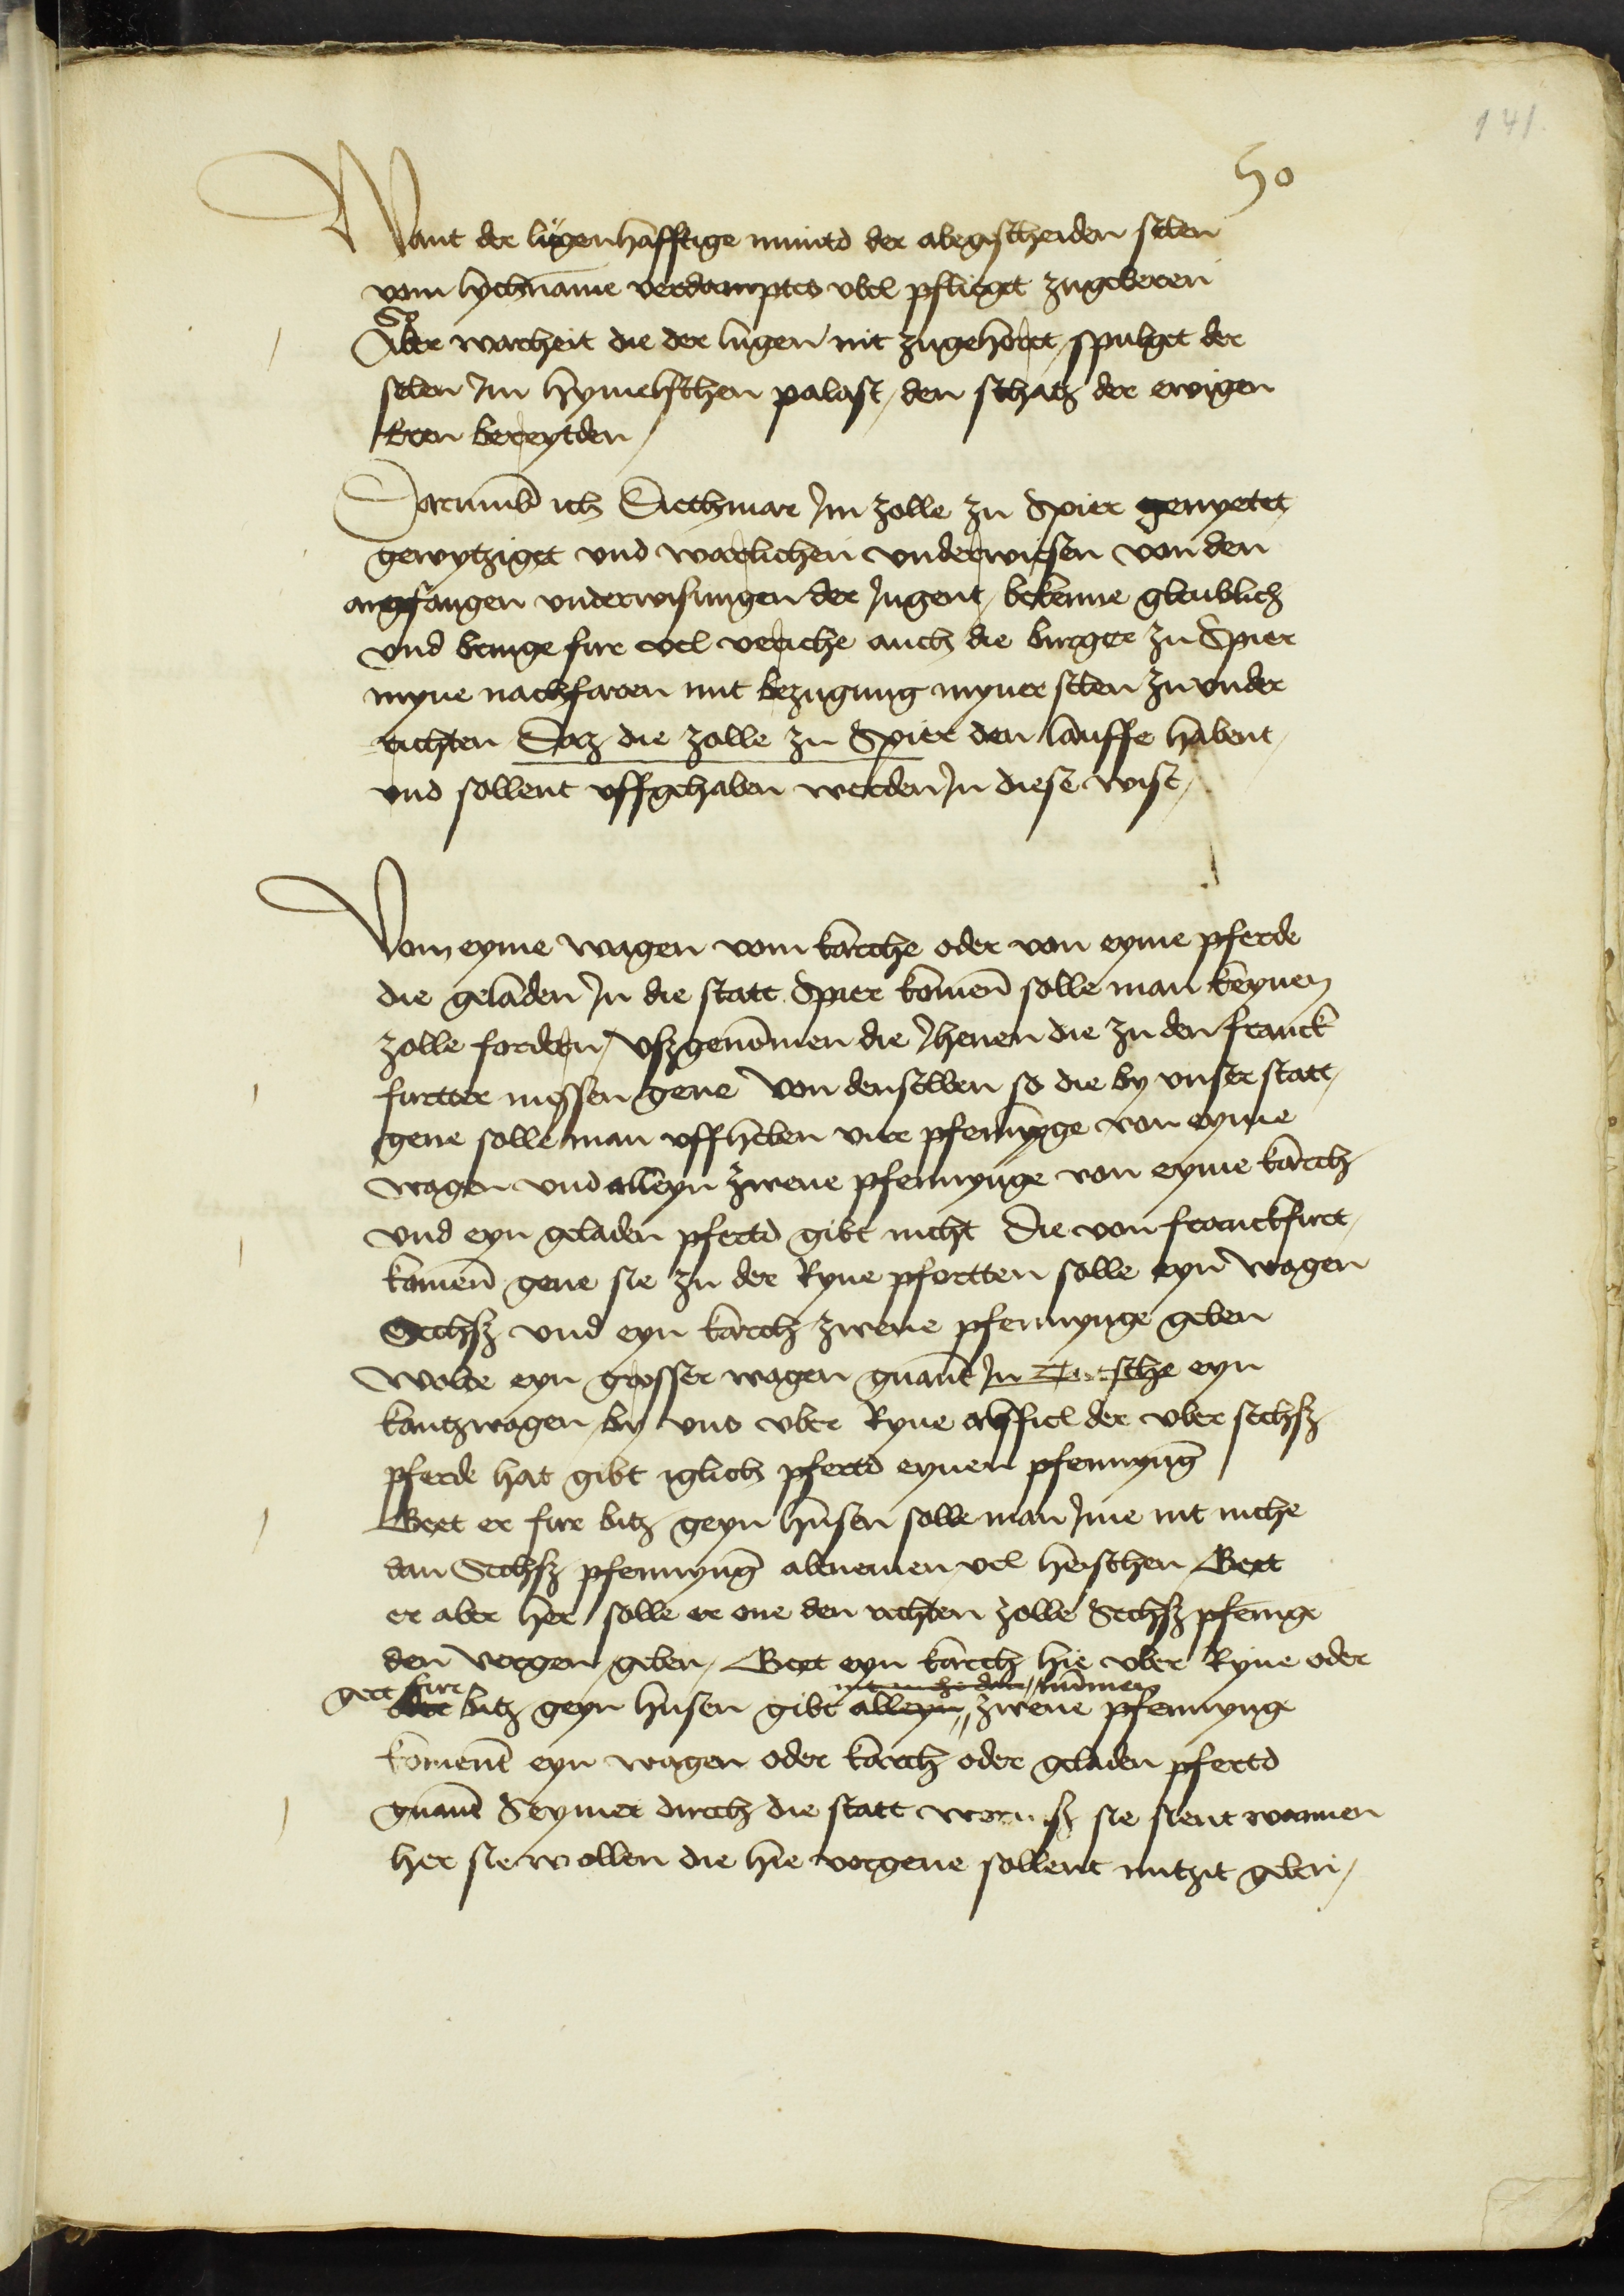 141.
50
Want der lügenhafftige muntd der abegescheiden selen
vom lychname verdamptes vbel pflieget zugeberen
So
Aber warheit die der lugen nit zugehoret, spulget der
selen Im hymelschen palast, den schatz der ewigen
bereytden,
Darumb ich Diethmar Im zolle zu Spier genyetet,
gewytziget vnd warlichen vnderwiesen von den
angefangen vnderwisungen der Jugent, bekenne gleublich
vnd bringe fure vel veriche auch die burger zu Spier
myne nachfaren mit bezugung myner selen zu vnder
richten Daz die zolle zu Spier den lauffe habent,
vnd sollent vffgehaben werden In diese wise,
Vom eyme wagen vom karche oder von eyme pferde
die geladen In die statt Spier komen solle man keynen
zolle fordern, vszgenommen die Jhenen die zu den franck
furtter messen gene Von denselben so die by vnser statt,
gene solle man vffheben vier pfennynge von eyme
wagen vnd alleyn zwene pfennynge von eyme karch
vnd eyn geladen pfertd gibt nicht Die von franckfurt,
komen gene sie zu der Ryne pfortten solle eyn wagen
Sechsz vnd eyn karch zwene pfennynge geben
Wolde eyn grosser wagen gnant In eyn
kantzwagen, by vns vber Ryne der vber sechsz
pferde hat gibt iglich pfertd eynen pfennyng
Gert er fure bitz geyn husen solle man Ime nit mehe
dan Sechsz pfennyng abenemen vel heischen Gert
er aber her solle er one den rechten zolle Sechsz pfennige
den vergen geben, Gert eyn karch hie vber Ryne oder
gert fure nit mehe dan nummen
bitz geyn husen gibt alleyn zwene pfennynge
koment eyn wagen oder karch oder geladen pfertd
gnant Seymer durch die statt sie sient wannen
her sie wollen die hie vorgene sollent nutzit geben,